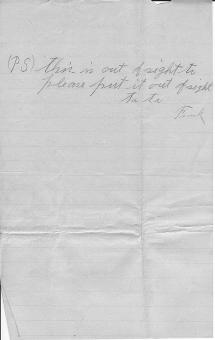 (PS) this is out of sight to
please put it out of sight
ta ta
Frank